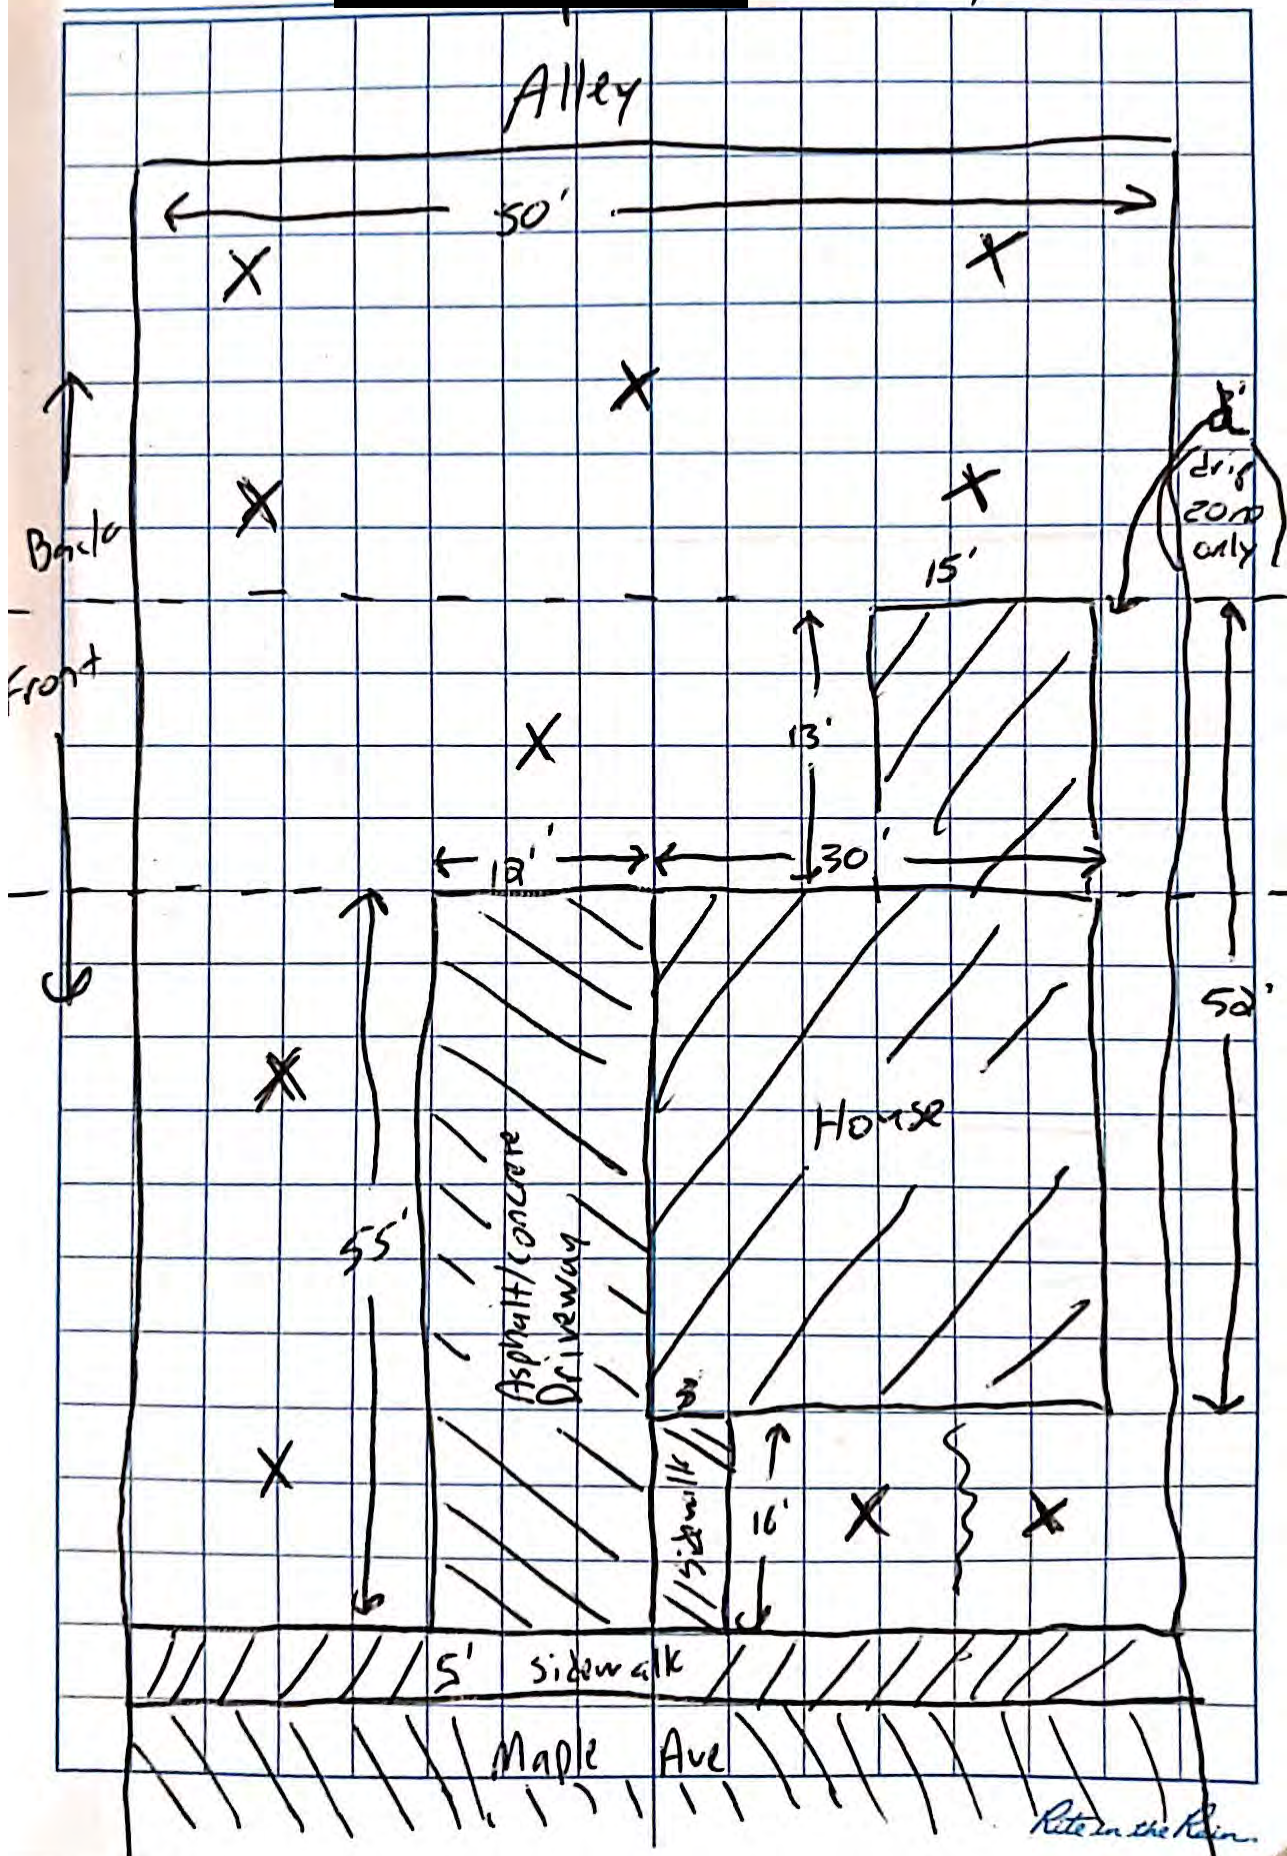 Alley
50'
X
X
X
X
X
drip
zone
only
Back
Front
15'
13'
X
12'
30'
52'
X
House
Asphalt/concrete
Driveway
55'
X
sidewalk
16'
X
X
5' sidewalk
Maple Ave
Rite in the Rain